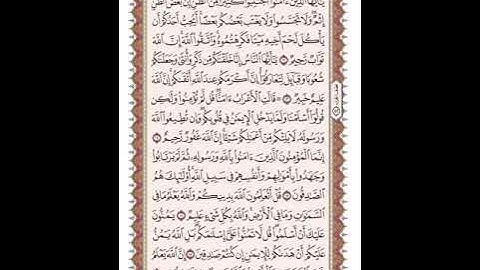 يَٰٓأَيُّهَا ٱلَّذِينَ ءَامَنُوا۟ ٱجْتَنِبُوا۟ كَثِيرًا مِّنَ ٱلظَّنِّ إِنَّ بَعْضَ ٱلظَّنِّ
إِثْمٌ ۖ وَلَا تَجَسَّسُوا۟ وَلَا يَغْتَب بَّعْضُكُم بَعْضًا ۚ أَيُحِبُّ أَحَدُكُمْ أَن
يَأْكُلَ لَحْمَ أَخِيهِ مَيْتًا فَكَرِهْتُمُوهُ ۚ وَٱتَّقُوا۟ ٱللَّهَ ۚ إِنَّ ٱللَّهَ
تَوَّابٌ رَّحِيمٌ ١٢ يَٰٓأَيُّهَا ٱلنَّاسُ إِنَّا خَلَقْنَٰكُم مِّن ذَكَرٍ وَأُنثَىٰ وَجَعَلْنَٰكُمْ
شُعُوبًا وَقَبَآئِلَ لِتَعَارَفُوٓا۟ ۚ إِنَّ أَكْرَمَكُمْ عِندَ ٱللَّهِ أَتْقَىٰكُمْ ۚ إِنَّ ٱللَّهَ
عَلِيمٌ خَبِيرٌ ١٣ قَالَتِ ٱلْأَعْرَابُ ءَامَنَّا ۖ قُل لَّمْ تُؤْمِنُوا۟ وَلَٰكِن
قُولُوٓا۟ أَسْلَمْنَا وَلَمَّا يَدْخُلِ ٱلْإِيمَٰنُ فِى قُلُوبِكُمْ ۖ وَإِن تُطِيعُوا۟ ٱللَّهَ
وَرَسُولَهُۥ لَا يَلِتْكُم مِّنْ أَعْمَٰلِكُمْ شَيْـًٔا ۚ إِنَّ ٱللَّهَ غَفُورٌ رَّحِيمٌ ١٤
إِنَّمَا ٱلْمُؤْمِنُونَ ٱلَّذِينَ ءَامَنُوا۟ بِٱللَّهِ وَرَسُولِهِۦ ثُمَّ لَمْ يَرْتَابُوا۟
وَجَٰهَدُوا۟ بِأَمْوَٰلِهِمْ وَأَنفُسِهِمْ فِى سَبِيلِ ٱللَّهِ ۚ أُو۟لَٰٓئِكَ هُمُ
ٱلصَّٰدِقُونَ ١٥ قُلْ أَتُعَلِّمُونَ ٱللَّهَ بِدِينِكُمْ وَٱللَّهُ يَعْلَمُ مَا فِى
ٱلسَّمَٰوَٰتِ وَمَا فِى ٱلْأَرْضِ ۚ وَٱللَّهُ بِكُلِّ شَىْءٍ عَلِيمٌ ١٦ يَمُنُّونَ
عَلَيْكَ أَنْ أَسْلَمُوا۟ ۖ قُل لَّا تَمُنُّوا۟ عَلَىَّ إِسْلَٰمَكُم ۖ بَلِ ٱللَّهُ يَمُنُّ
عَلَيْكُمْ أَنْ هَدَىٰكُمْ لِلْإِيمَٰنِ إِن كُنتُمْ صَٰدِقِينَ ١٧ إِنَّ ٱللَّهَ يَعْلَمُ